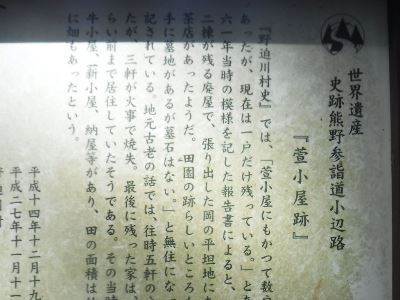 世界遺産
史跡熊野参詣道小辺路
『萱小屋跡』
『野迫川村史』では、「萱小屋にもかつて数
あったが、現在は一戸だけ残っている。」とあ
六一年当時の模様を記した報告書によると、
二棟が残る廃屋で、張り出した岡の平坦地にあ
茶店があったようだ。田園の跡らしいところも
手に墓地があるが墓石はない。」と無住にな
記されている。地元古老の話では、往時五軒の
たが、三軒が火事で焼失。最後に残った家は、
らい前まで居住していたそうである。その当時
牛小屋、薪小屋、納屋等があり、田の面積は
に畑もあったという。
平成十四年十二月十九
平成二七年十一月十一